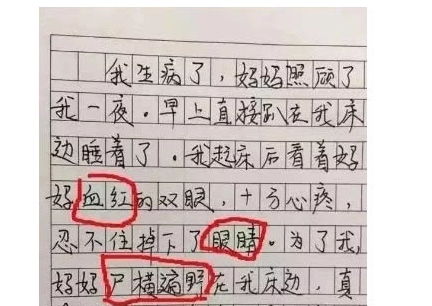 我生病了，妈妈照顾了
我一夜。早上直接趴在我床
边睡着了。我起床后看着妈
妈血红的双眼，十分心疼，
忍不住掉下了眼睛。为了我，
妈妈尸横遍野在我床边，真